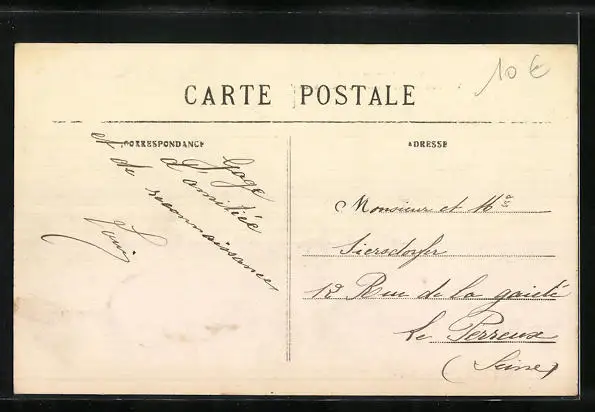 10 €
CARTE POSTALE
CORRESPONDANCE
ADRESSE
Gage
d'amitiée
et de reconnaissance
Monsieur et Mme
Siersdorfer
12 Rue de la gaieté
Le Perreux
(Seine)